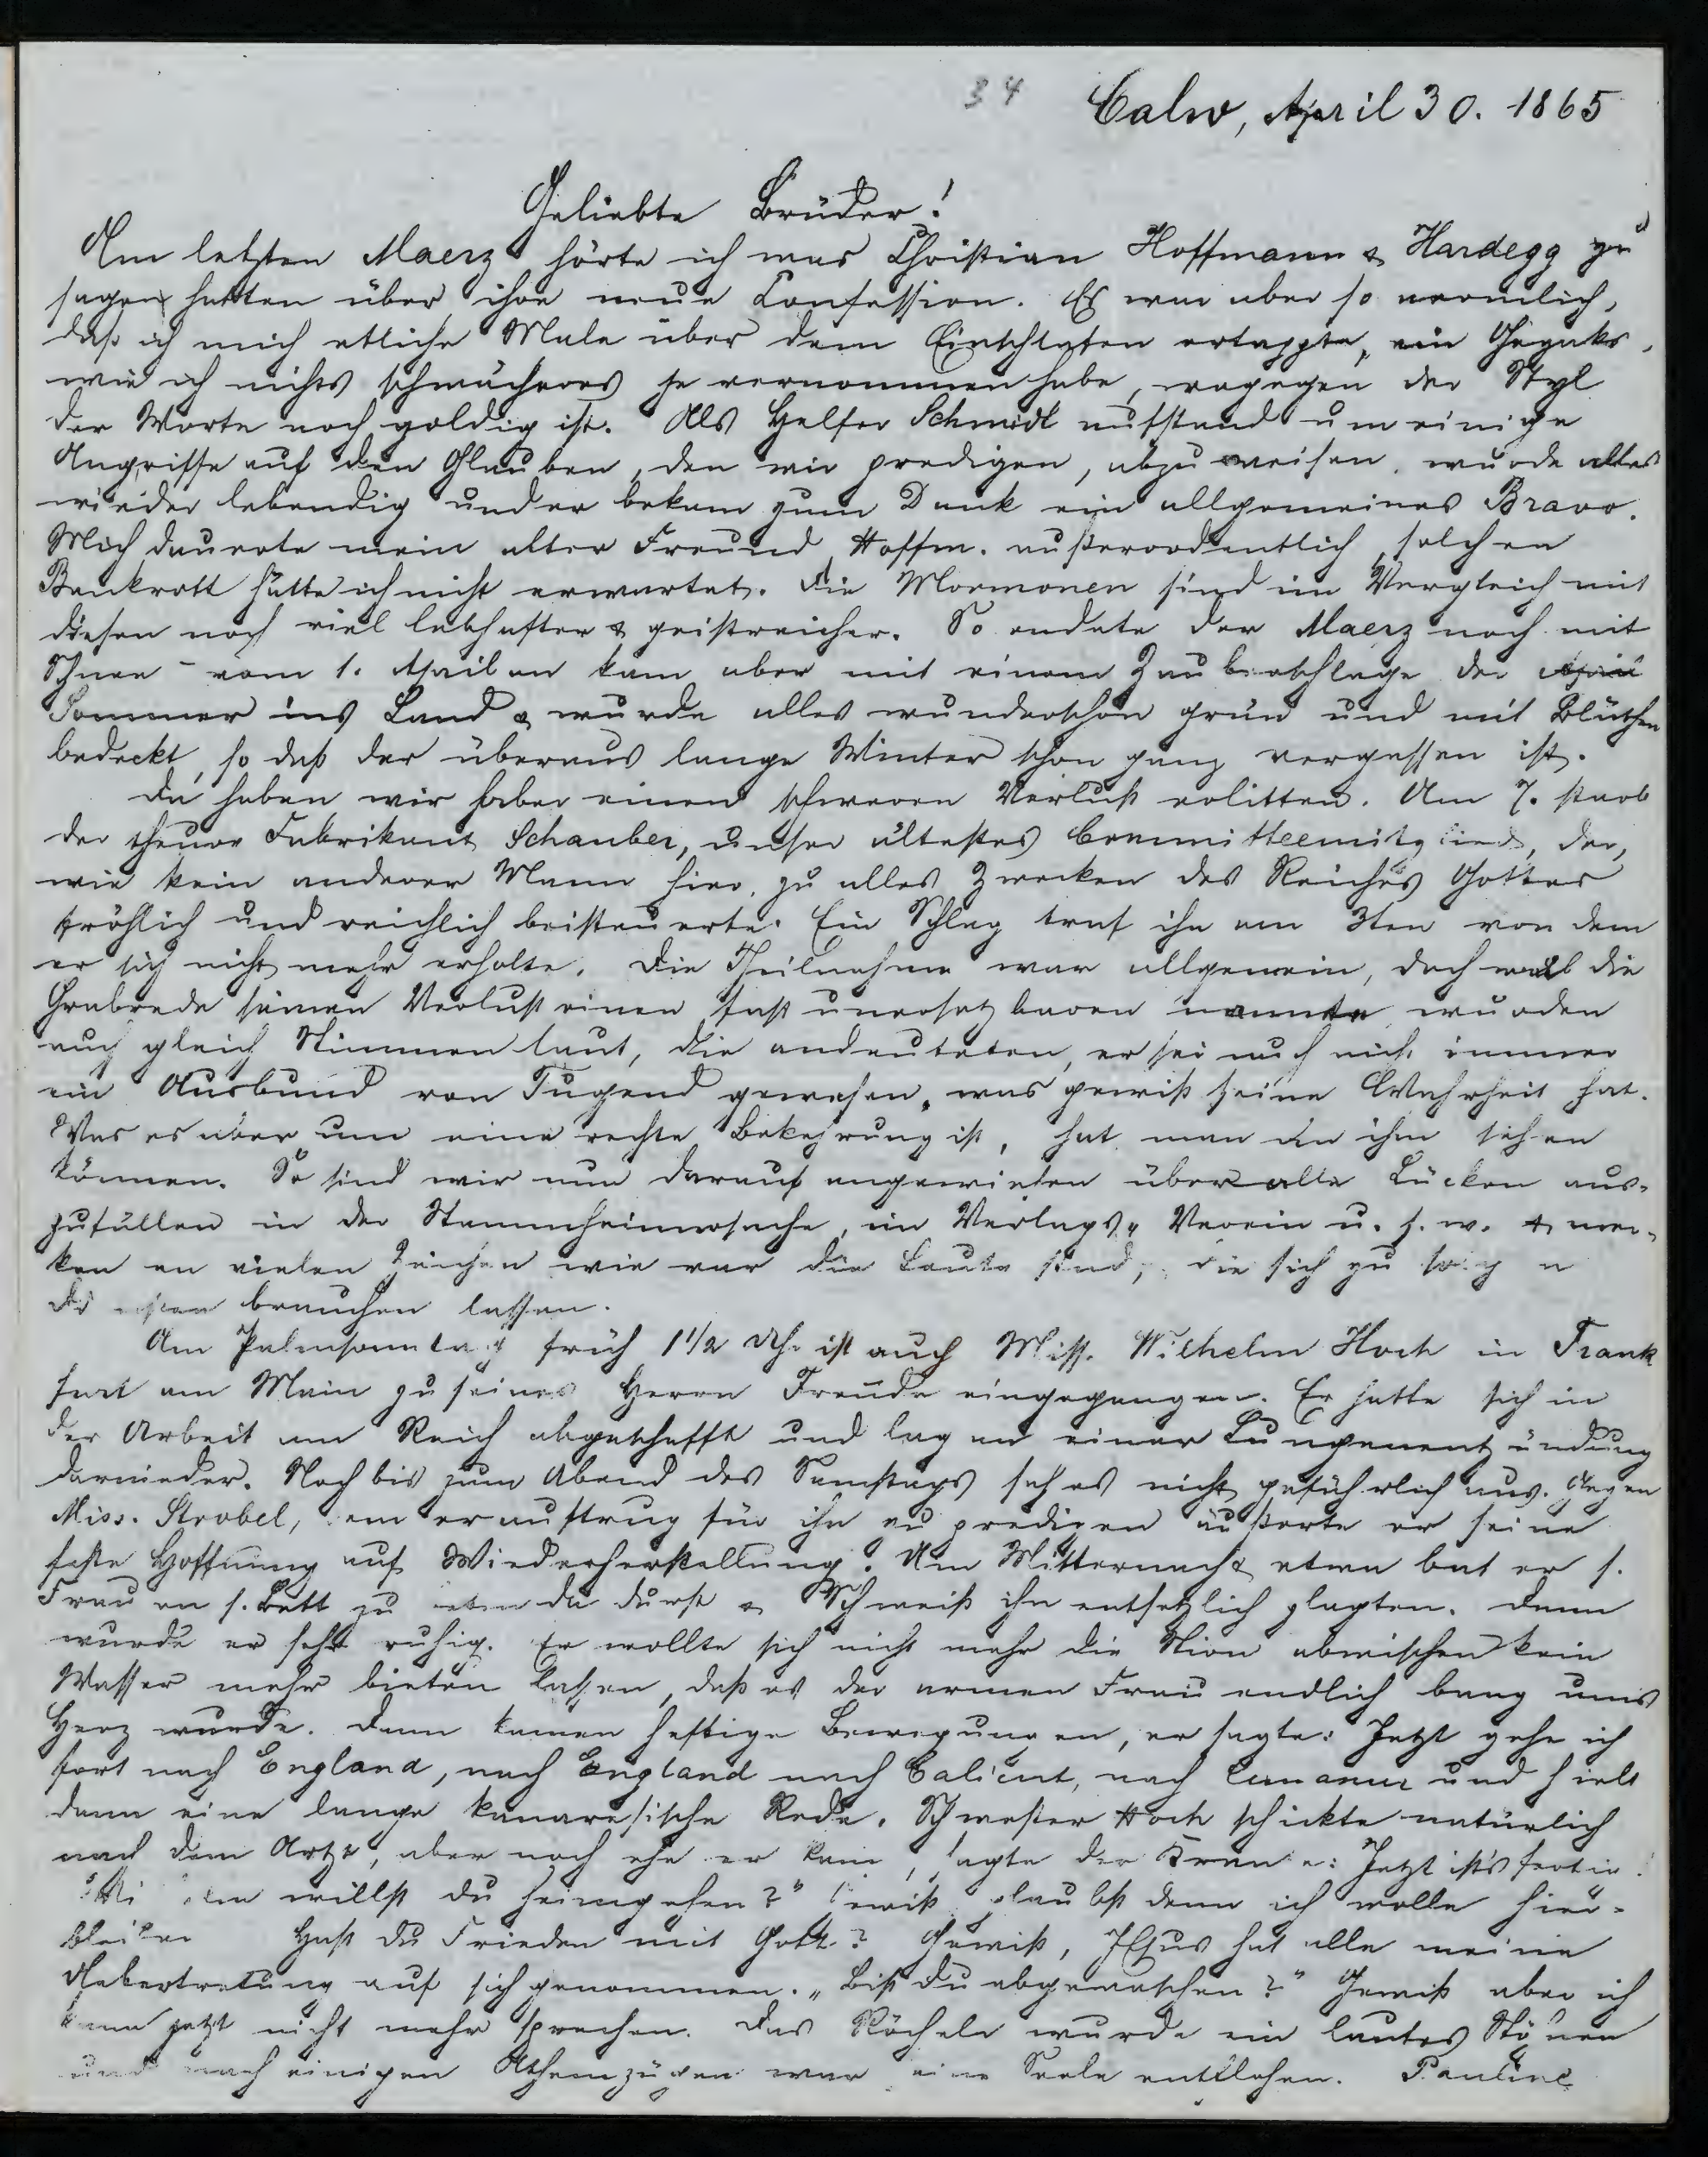 34 Calw, April 30. 1865
Geliebte Brüder!
Am letzten Maerz hörte ich was Christian Hoffmann & Hardegg zu
sagen hatten über ihre neue Confession. Es war aber so ärmlich,
daß ich mich etliche Male über dem Einschlafen ertappte, ein Gegaks,
wie ich nichts schwächeres je vernommen habe, wogegen der Styl
der Worte noch goldig ist. Als Helfer Schmidt aufstand um einige
Angriffe auf den Glauben, den wir predigen, abzuweisen, wurde alles
wieder lebendig und er bekam zum Dank ein allgemeines Bravo.
Mich dauerte mein alter Freund Hoffm. außerordentlich, solchen
Bankrott hätte ich nicht erwartet. Die Mormonen sind im Vergleich mit
diesen noch viel lebhafter & geistreicher. So endete der Maerz noch mit
Schnee - vom 1. April an kam aber mit einem Zauberschlage der April
Sommer ins Land & wurde alles wunderschön grün und mit Blüthen
bedeckt, so daß der überaus lange Winter schon ganz vergessen ist.
Da haben wir aber einen schweren Verlust erlitten. Am 7. starb
der theure Fabrikant Schauber, unser ältestes Committeemitglied, der,
wie kein anderer Mann hier, zu alles Zwecken des Reiches Gottes
fröhlich und reichlich beisteuerte. Ein Schlag traf ihn am 3ten von dem
er sich nicht mehr erholte. Die Theilnahme war allgemein, doch weil die
Grabrede seinen Verlust einen fast unersetzbaren nannte, wurden
auch gleich Stimmen laut, die andeuteten, er sei auch nicht immer
ein Ausbund von Tugend gewesen, was gewiß seine Wahrheit hat.
Was es aber um eine rechte Bekehrung ist, hat man an ihm sehen
können. So sind wir nun darauf angewiesen überalle Lücken aus-
zufüllen in der Stammheimersache, im Verlags-Verein u. s. w. & mer-
ken an vielen Zeichen wie rar die Leute sind, die sich zu
brauchen lassen.
Am Palmsonntag früh 1 1/2 Uhr ist auch Miss. Wilhelm Hoch in Frank
furt am Main zu seines Herrn Freude eingegangen. Er hatte sich in
der Arbeit am Reich abgeschafft und lag an einer Lungenentzündung
darnieder. Noch bis zum Abend des Samstags sah es nicht gefährlich aus. Gegen
Miss. Strobel, dem er auftrug für ihn zu predigen äußerte er seine
feste Hoffnung auf Wiederherstellung. Um Mitternacht etwa bat er s.
Frau an s. Bett zu beten da Durst & Schweiß ihn entsetzlich plagten. Dann
wurde er sehr ruhig. Er wollte sich nicht mehr die Stirn abwischen kein
Wasser mehr bieten lassen, daß es der armen Frau endlich bang ums
Herz wurde. Dann kamen heftige Bewegungen, er sagte: Jetzt gehe ich
fort nach England, nach England nach Calicut, nach Cananur und hielt
dann eine lange kanaresische Rede. Schwester Hoch schickte natürlich
nach dem Artzt, aber noch ehe er kam, sagte der Kranke: Jetzt ists fertig.
"Wilhelm willst du heimgehen?" Gewiß glaubst denn ich wolle hier-
bleiben Hast du Frieden mit Gott? Gewiß, JEsus hat alle meine
Uebertretung auf sich genommen. "Bist du abgewaschen?" Gewiß aber ich
kann jetzt nicht mehr sprechen. Das Röcheln wurde ein lautes Stöhnen
und nach einigen Athemzügen war seine Seele entflohen. Pauline